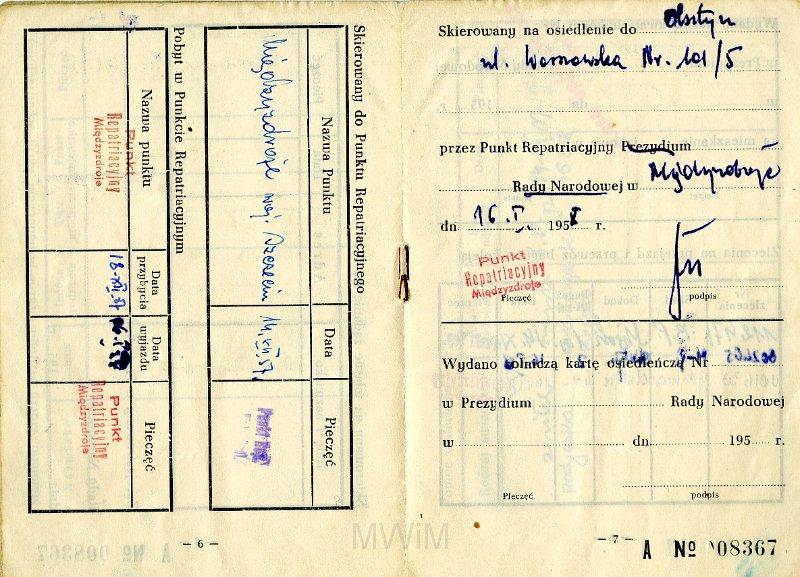 Skierowany do Punktu Repatriacyjnego
Nazwa Punktu
Data
Pieczęć
Międzyzdroje woj. Szczecin
14.XII.57.
Pobyt w Punkcie Repatriacyjnym
Nazwa punktu
Data przybycia
Data wyjazdu
Pieczęć
Punkt
Repatriacyjny
Międzyzdroje
18.XII.57
Punkt
Repatriacyjny
Międzyzdroje
- 6 -
Skierowany na osiedlenie do Olsztyn
ul. Nr. 101/5
przez Punkt Repatriacyjny Prezydium
Rady Narodowej w Międzyzdroje
dn. 16.I. 1958 r.
Punkt
Repatriacyjny
Międzyzdroje
Pieczęć
podpis
Wydano rolniczą kartę osiedleńczą Nr
w Prezydium Rady Narodowej
w dn. 195 r.
Pieczęć
podpis
- 7 -
A Nº 008367
MWiM